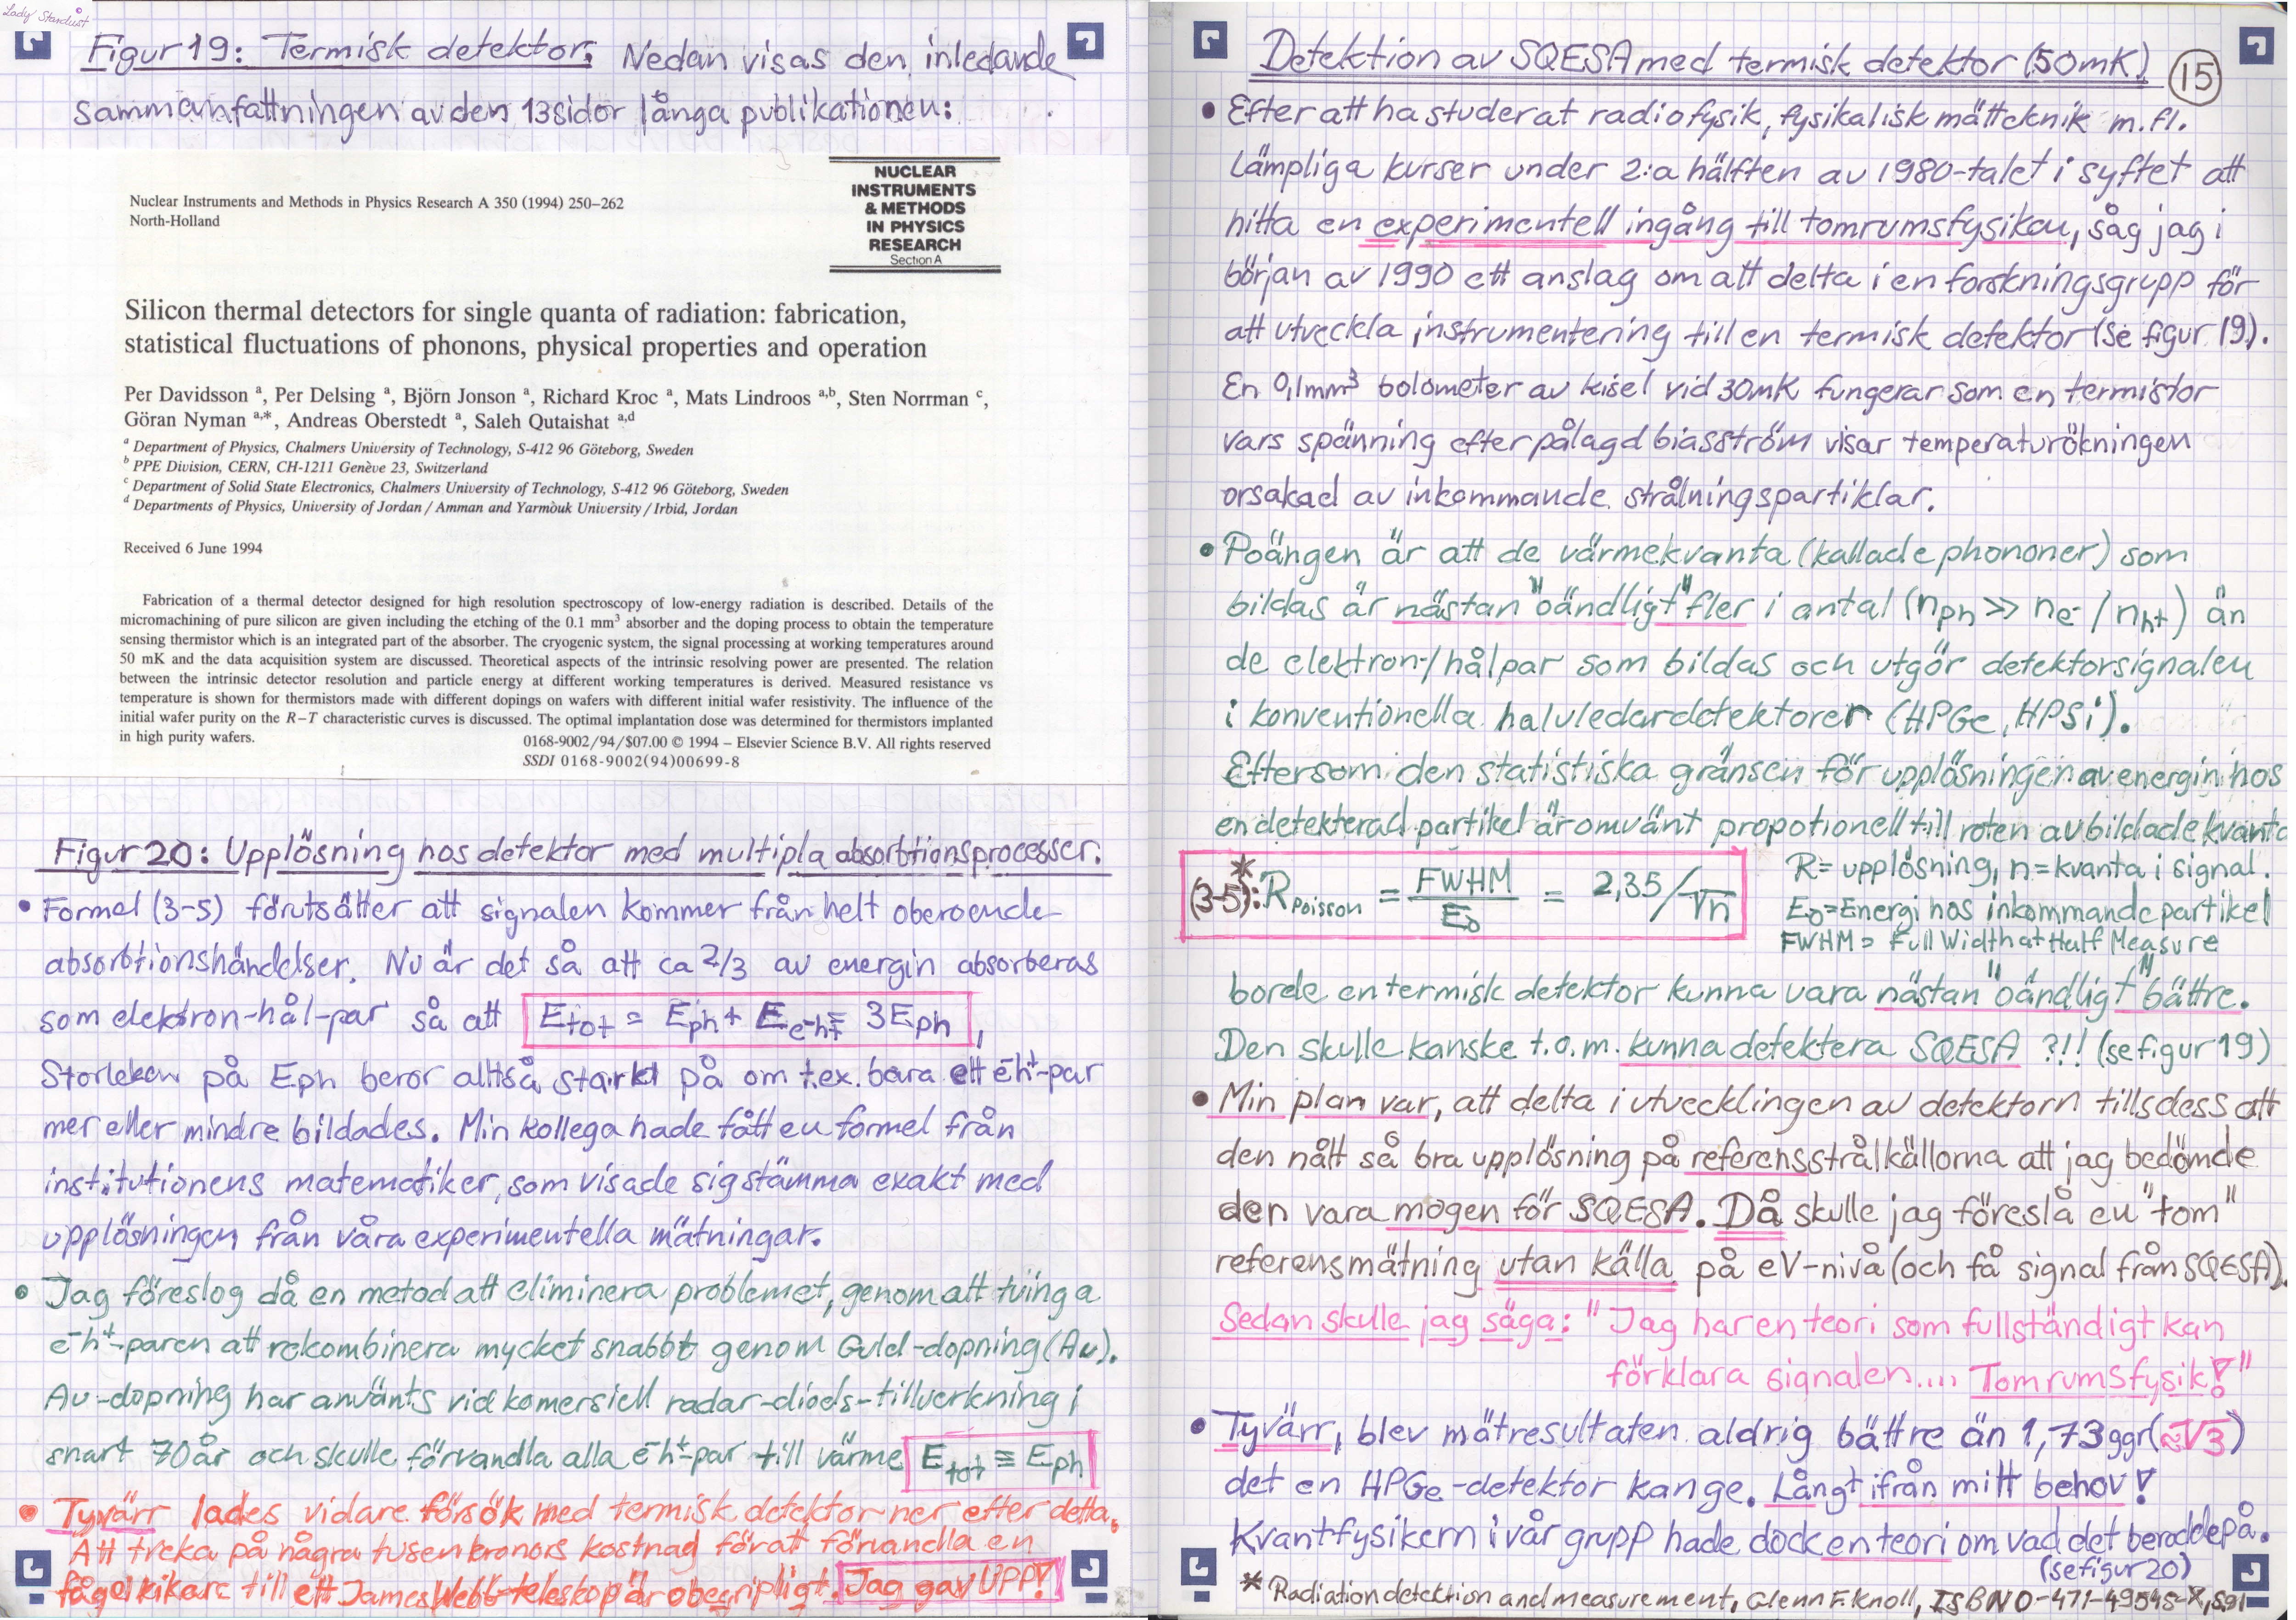 Lady Stardust
Figur 19: Termisk detektor. Nedan visas den inledande
sammanfattningen av den 13 sidor långa publikationen:
NUCLEAR
INSTRUMENTS
& METHODS
IN PHYSICS
RESEARCH
Section A
Nuclear Instruments and Methods in Physics Research A 350 (1994) 250–262
North-Holland
Silicon thermal detectors for single quanta of radiation: fabrication,
statistical fluctuations of phonons, physical properties and operation
Per Davidsson a, Per Delsing a, Björn Jonson a, Richard Kroc a, Mats Lindroos a,b, Sten Norrman c,
Göran Nyman a,*, Andreas Oberstedt a, Saleh Qutaishat a,d
a Department of Physics, Chalmers University of Technology, S-412 96 Göteborg, Sweden
b PPE Division, CERN, CH-1211 Genève 23, Switzerland
c Department of Solid State Electronics, Chalmers University of Technology, S-412 96 Göteborg, Sweden
d Departments of Physics, University of Jordan / Amman and Yarmouk University / Irbid, Jordan
Received 6 June 1994
Fabrication of a thermal detector designed for high resolution spectroscopy of low-energy radiation is described. Details of the
micromachining of pure silicon are given including the etching of the 0.1 mm³ absorber and the doping process to obtain the temperature
sensing thermistor which is an integrated part of the absorber. The cryogenic system, the signal processing at working temperatures around
50 mK and the data acquisition system are discussed. Theoretical aspects of the intrinsic resolving power are presented. The relation
between the intrinsic detector resolution and particle energy at different working temperatures is derived. Measured resistance vs
temperature is shown for thermistors made with different dopings on wafers with different initial wafer resistivity. The influence of the
initial wafer purity on the R–T characteristic curves is discussed. The optimal implantation dose was determined for thermistors implanted
in high purity wafers.
0168-9002/94/$07.00 © 1994 – Elsevier Science B.V. All rights reserved
SSDI 0168-9002(94)00699-8
Figur 20: Upplösning hos detektor med multipla absorbtionsprocesser.
• Formel (3-5) förutsätter att signalen kommer från helt oberoende
absorbtionshändelser. Nu är det så att ca 2/3 av energin absorberas
som elektron-hål-par så att Etot = Eph + Ee-h+ = 3Eph,
Storleken på Eph beror alltså starkt på om t.ex. bara ett e-h+-par
mer eller mindre bildades. Min kollega hade fått en formel från
institutionens matematiker, som visade sig stämma exakt med
upplösningen från våra experimentella mätningar.
• Jag föreslog då en metod att eliminera problemet, genom att tvinga
e-h+-paren att rekombinera mycket snabbt genom Guld-dopning (Au).
Au-dopning har använts vid komersiell radar-diods-tillverkning i
snart 70 år och skulle förvandla alla e-h+-par till värme Etot ≡ Eph
• Tyvärr lades vidare försök med termisk detektor ner efter detta.
Att treka på några tusen kronors kostnad för att förvandla en
fågelkikare till ett James Webb-teleskop är obegripligt. Jag gav UPP!
Detektion av SQESA med termisk detektor (50mK) 15
• Efter att ha studerat radiofysik, fysikalisk mätteknik m.fl.
Lämpliga kurser under 2:a hälften av 1980-talet i syftet att
hitta en experimentell ingång till tomrumsfysiken, såg jag i
början av 1990 ett anslag om att delta i en forskningsgrupp för
att utveckla instrumentering till en termisk detektor (se figur 19).
En 0,1mm³ bolometer av kisel vid 30mK fungerar som en termistor
vars spänning efter pålagd biasström visar temperaturökningen
orsakad av inkommande strålningspartiklar.
• Poängen är att de värmekvanta (kallade phononer) som
bildas är nästan "oändligt" fler i antal (nph >> ne- / nh+) än
de elektron-/hålpar som bildas och utgör detektorsignalen
i konventionella halvledardetektorer (HPGe, HPSi).
Eftersom den statistiska gränsen för upplösningen av energin hos
en detekterad partikel är omvänt propotionell till roten av bildade kvanta
(3-5)*: RPoisson = FWHM/E0 = 2,35/√n
R = upplösning, n = kvanta i signal.
E0 = Energi hos inkommande partikel
FWHM = Full Width at Half Measure
borde en termisk detektor kunna vara nästan "oändligt" bättre.
Den skulle kanske t.o.m. kunna detektera SQESA ?!! (se figur 19)
• Min plan var, att delta i utvecklingen av detektorn tills dess att
den nått så bra upplösning på referensstrålkällorna att jag bedömde
den vara mogen för SQESA. Då skulle jag föreslå en "tom"
referensmätning utan källa på eV-nivå (och få signal från SQESA).
Sedan skulle jag säga: "Jag har en teori som fullständigt kan
förklara signalen.... Tomrumsfysik!"
• Tyvärr, blev mätresultaten aldrig bättre än 1,73 ggr (≈√3)
det en HPGe-detektor kan ge. Långt ifrån mitt behov!
Kvantfysikern i vår grupp hade dock en teori om vad det berodde på.
(se figur 20)
* Radiation detektion and measurement, Glenn F. Knoll, ISBN 0-471-49545-X, s.91